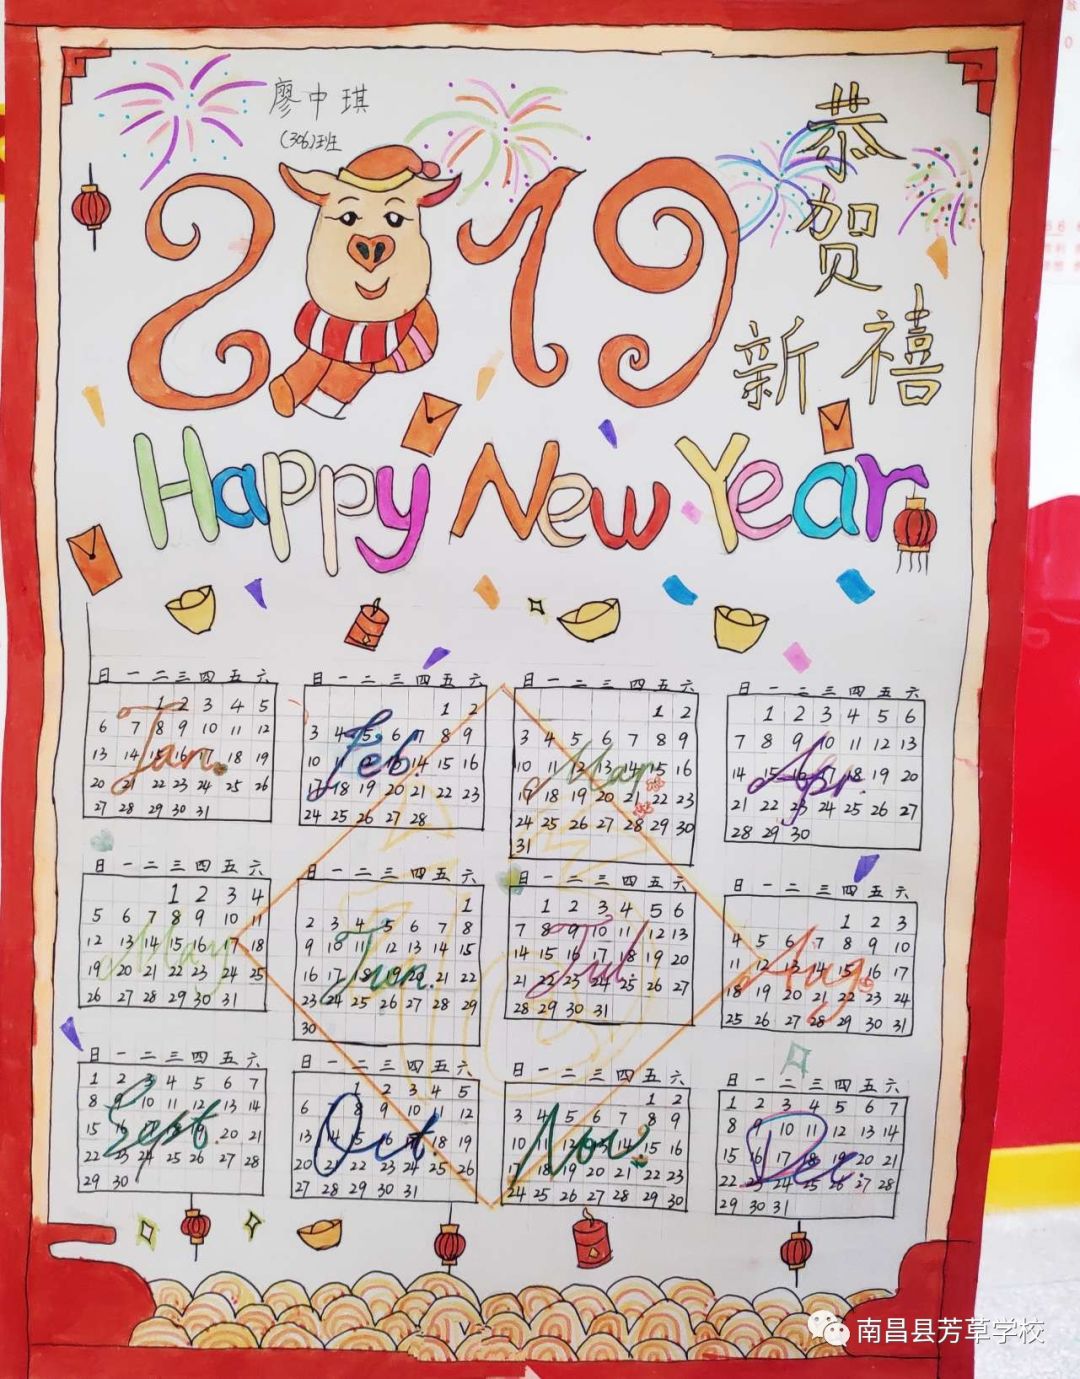 廖中琪
(306)班
2019
恭贺
新禧
Happy New Year
日 一 二 三 四 五 六
1 2 3 4 5
6 7 8 9 10 11 12
13 14 15 16 17 18 19
20 21 22 23 24 25 26
27 28 29 30 31
Jan.
日 一 二 三 四 五 六
1 2
3 4 5 6 7 8 9
10 11 12 13 14 15 16
17 18 19 20 21 22 23
24 25 26 27 28
Feb
日 一 二 三 四 五 六
1 2
3 4 5 6 7 8 9
10 11 12 13 14 15 16
17 18 19 20 21 22 23
24 25 26 27 28 29 30
31
Mar
日 一 二 三 四 五 六
1 2 3 4 5 6
7 8 9 10 11 12 13
14 15 16 17 18 19 20
21 22 23 24 25 26 27
28 29 30
Apr.
日 一 二 三 四 五 六
1 2 3 4
5 6 7 8 9 10 11
12 13 14 15 16 17 18
19 20 21 22 23 24 25
26 27 28 29 30 31
May
日 一 二 三 四 五 六
1
2 3 4 5 6 7 8
9 10 11 12 13 14 15
16 17 18 19 20 21 22
23 24 25 26 27 28 29
30
Jun.
日 一 二 三 四 五 六
1 2 3 4 5 6
7 8 9 10 11 12 13
14 15 16 17 18 19 20
21 22 23 24 25 26 27
28 29 30 31
Jul.
日 一 二 三 四 五 六
1 2 3
4 5 6 7 8 9 10
11 12 13 14 15 16 17
18 19 20 21 22 23 24
25 26 27 28 29 30 31
Aug
日 一 二 三 四 五 六
1 2 3 4 5 6 7
8 9 10 11 12 13 14
15 16 17 19 20 21
22 23 24 25 26 27 28
29 30
Sept.
日 一 二 三 四 五 六
1 2 3 4 5
6 7 8 9 10 11 12
13 14 15 16 17 18 19
20 21 22 23 24 25 26
27 28 29 30 31
Oct.
日 一 二 三 四 五 六
1 2
3 4 5 6 7 8 9
10 11 12 13 14 15 16
17 18 19 20 21 22 23
24 25 26 27 28 29 30
Nov.
日 一 二 三 四 五 六
1 2 3 4 5 6 7
8 9 10 11 12 13 14
15 16 17 18 19 20 21
22 23 24 25 26 27 28
29 30 31
Dec.
南昌县芳草学校